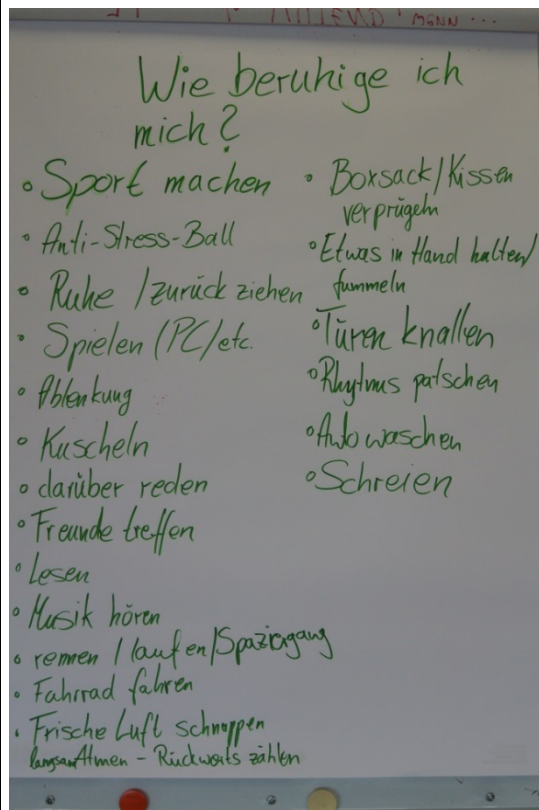 Wie beruhige ich
mich?
• Sport machen
• Anti-Stress-Ball
• Ruhe / zurück ziehen
• Spielen (PC/etc.
• Ablenkung
• Kuscheln
• darüber reden
• Freunde treffen
• Lesen
• Musik hören
• rennen / laufen/Spaziergang
• Fahrrad fahren
• Frische Luft schnappen
langsam Atmen - Rückwerts zählen
• Boxsack/Kissen
verprügeln
• Etwas in Hand halten/
fummeln
• Türen knallen
• Rhytmus patschen
• Auto waschen
• Schreien